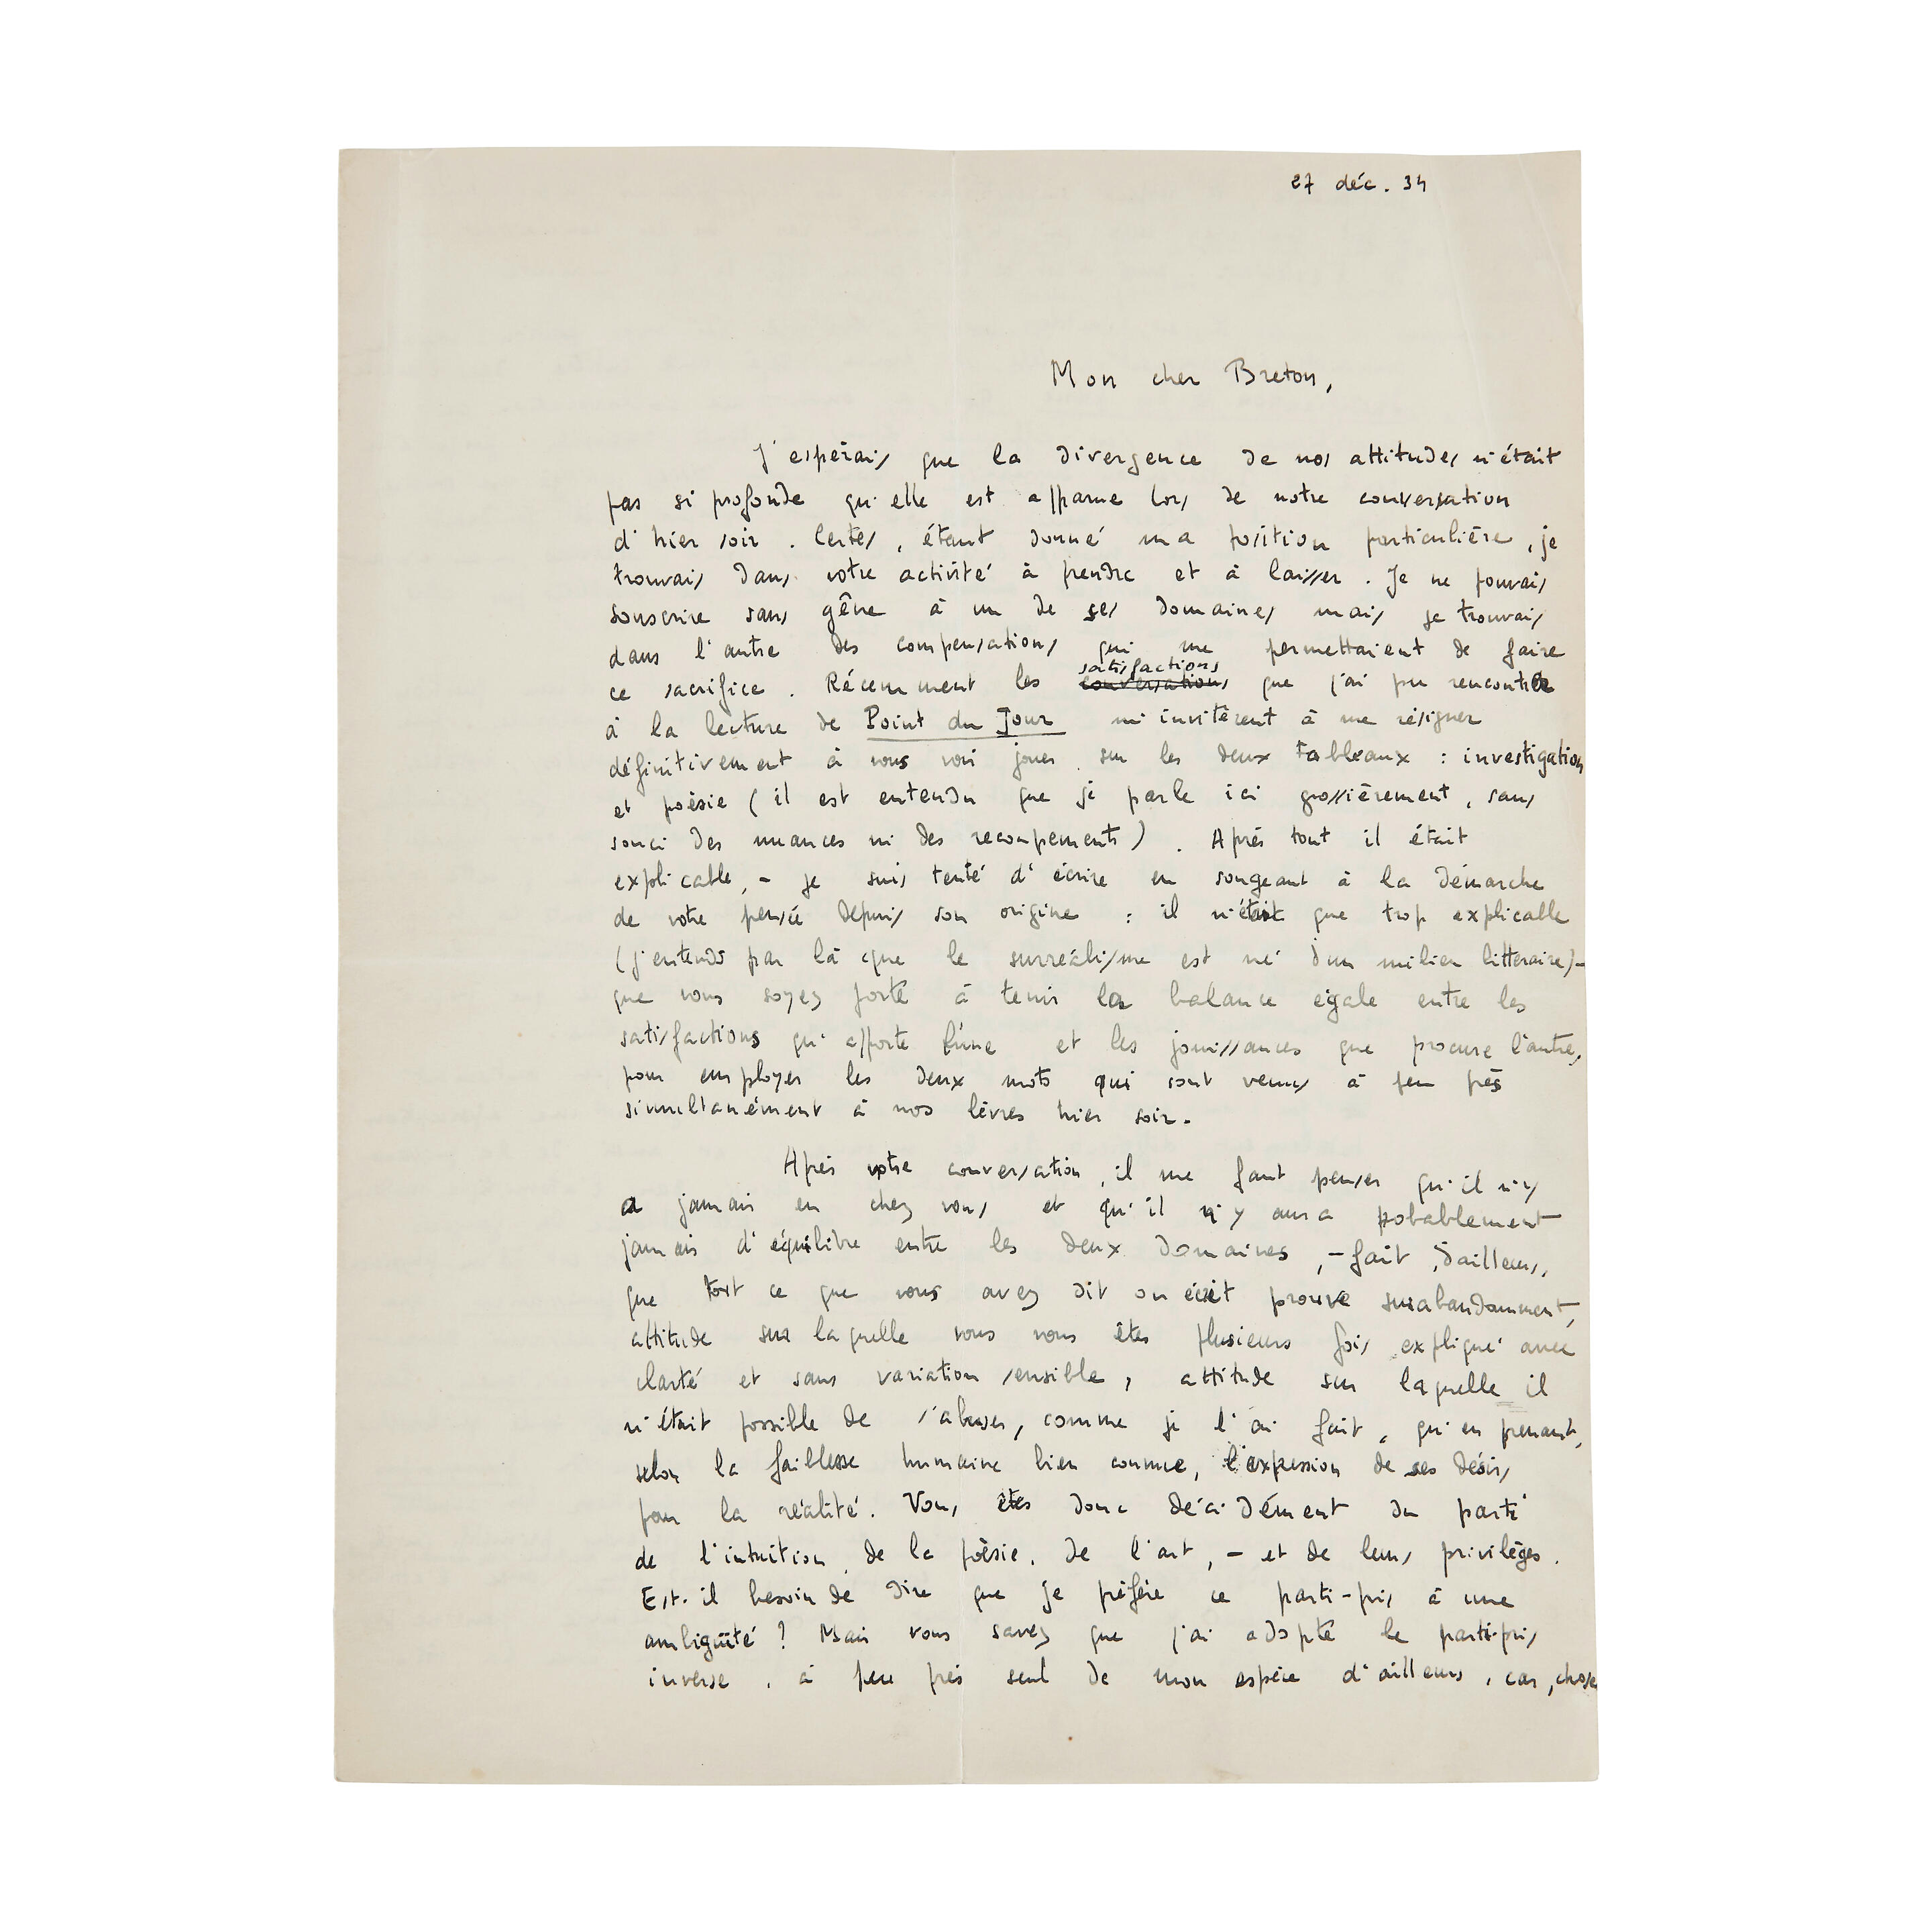 27 déc. 34
Mon cher Breton,
J'espérais que la divergence de nos attitudes n'était
pas si profonde qu'elle est apparue lors de notre conversation
d'hier soir. Certes, étant donné ma position particulière, je
trouvais dans votre activité à prendre et à laisser. Je ne pouvais
souscrire sans gêne à un de ses domaines mais je trouvais
dans l'autre des compensations qui me permettaient de faire
satisfactions
ce sacrifice. Récemment les conversations que j'ai pu rencontrer
à la lecture de Point du Jour m'invitèrent à me résigner
définitivement à vous voir jouer sur les deux tableaux : investigation
et poésie (il est entendu que je parle ici grossièrement, sans
souci des nuances ni des recoupements). Après tout il était
explicable, - je suis tenté d'écrire en songeant à la démarche
de votre pensée depuis son origine : il n'était que trop explicable
(j'entends par là que le surréalisme est né d'un milieu littéraire) -
que vous soyez porté à tenir la balance égale entre les
satisfactions qu'apporte l'une et les jouissances que procure l'autre,
pour employer les deux mots qui sont venus à peu près
simultanément à nos lèvres hier soir.
Après votre conversation, il me faut penser qu'il n'y
a jamais eu chez vous et qu'il n'y aura probablement
jamais d'équilibre entre les deux domaines, - fait, d'ailleurs,
que tout ce que vous avez dit ou écrit prouve surabondamment,
attitude sur laquelle vous vous êtes plusieurs fois expliqué avec
clarté et sans variation sensible, attitude sur laquelle il
n'était possible de s'abuser, comme je l'ai fait, qu'en prenant,
selon la faiblesse humaine bien connue, l'expression de ses désirs
pour la réalité. Vous êtes donc décidément du parti
de l'intuition, de la poésie, de l'art, - et de leurs privilèges.
Est-il besoin de dire que je préfère ce parti-pris à une
ambiguïté ? Mais vous savez que j'ai adopté le parti-pris
inverse, à peu près seul de mon espèce d'ailleurs, car, chose